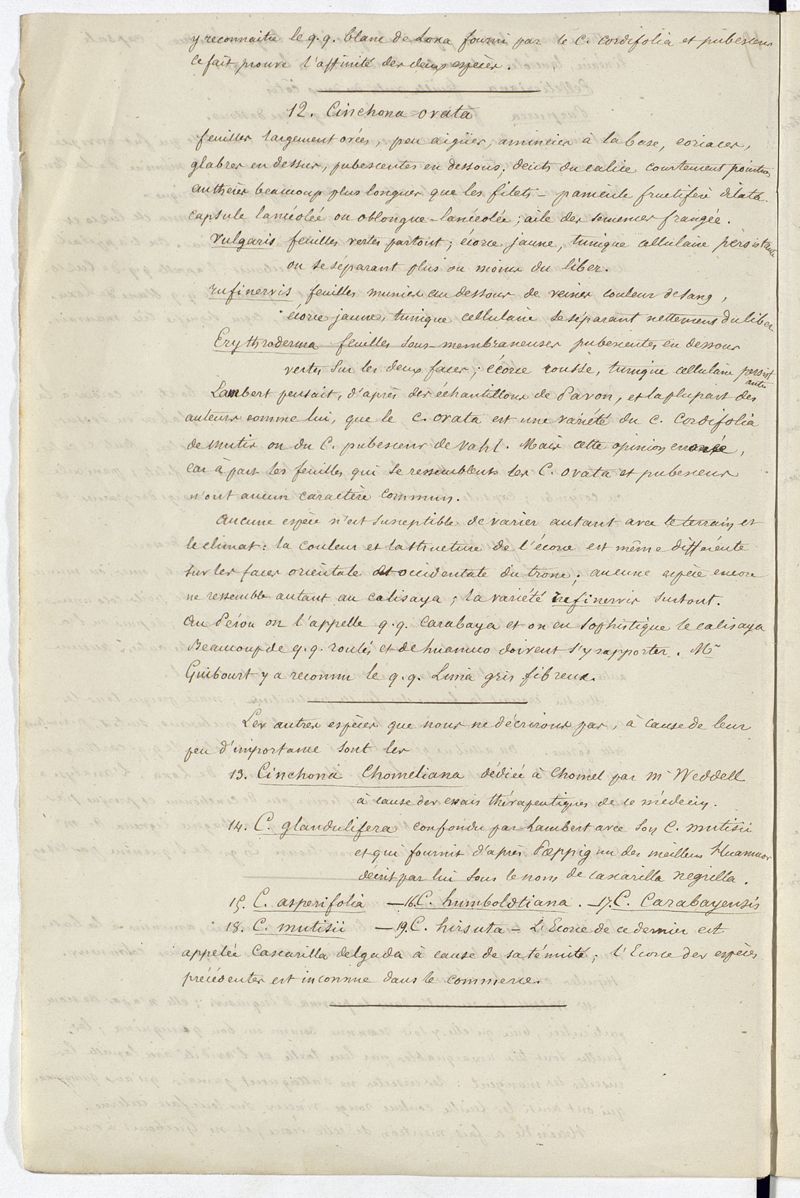 y reconnaitre le q.q. blanc de Loxa fourni par le C. Cordifolia et pubescens
ce fait prouve l'affinité des deux espèces.
12. Cinchona ovata
feuilles largement ovées, peu aigües, amincies à la base, coriaces,
glabres en dessus, pubescentes en dessous; dents du calice courtement pointues
anthères beaucoup plus longues que les filets - panicule fructifère dilata
capsule lancéolée ou oblongue-lancéolée; aile des semences frangée.
Vulgaris feuilles vertes partout; écorce jaune, tunique cellulaire persistante
ou se séparant plus ou moins du liber.
rufinervis feuilles munies au dessous de veines couleur de sang,
écorce jaune, tunique cellulaire se séparant nettement du liber
Erythroderma feuilles sous-membraneuses pubescentes en dessous
vertes sur les deux faces; écorce rousse, tunique cellulaire persist
ante
Lambert pensait, d'après des échantillons de Pavon, et la plupart des
auteurs comme lui, que le C. ovata est une variété du C. Cordifolia
de Mutis ou du C. pubescens de Vahl. Mais cette opinion
car à part les feuilles qui se ressemblent les C. ovata et pubescens
n'ont aucun caractère commun.
Aucune espèce n'est susceptible de varier autant avec le terrain et
le climat: la couleur et la structure de l'écorce est même différente
sur les faces orientale et occidentale du tronc; aucune espèce encore
ne ressemble autant au calisaya; la variété rufinervis surtout.
Au Pérou on l'appelle q.q. Carabaya et on en sophistique le calisaya
Beaucoup de q.q. roulés et de huanuco doivent s'y rapporter. Mr
Guibourt y a reconnu le q.q. Lima gris fibreux.
Les autres espèces que nous ne décrirons pas, à cause de leur
peu d'importance sont les
13. Cinchona Chomeliana dédiée à Chomel par Mr Weddell
à cause des essais thérapeutiques de ce médecin.
14. C. glandulifera confondu par Lambert avec son C. mutisii
et qui fournit d'après Pœppig un des meilleurs Huanuco
décrit par lui sous le nom de cascarilla negrilla.
15. C. asperifolia - 16. C. humboldtiana. - 17. C. Carabayensis
18. C. mutisii - 19. C. hirsuta - L'Ecorce de ce dernier est
appelée Cascarilla delgada à cause de sa ténuité; l'Ecorce des espèces
précédentes est inconnue dans le commerce.